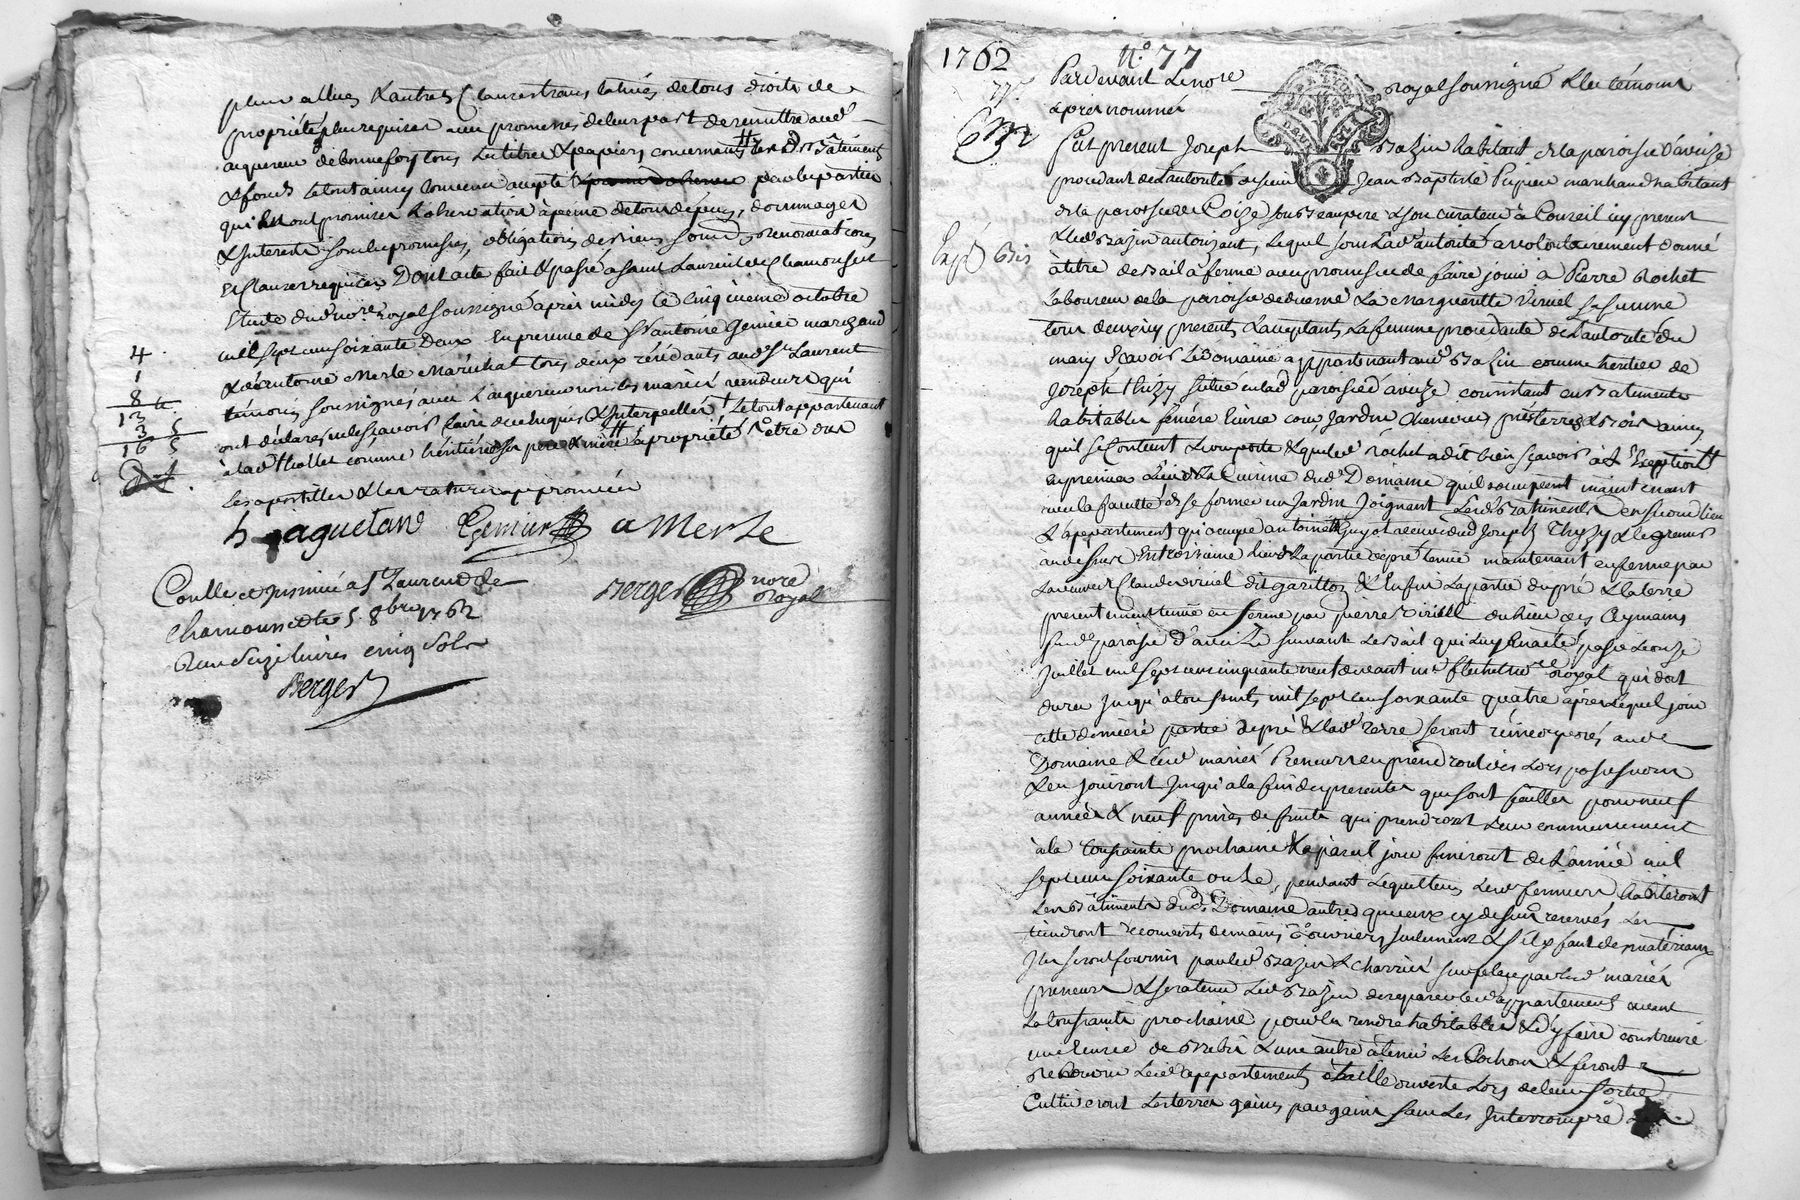 plus alluez & autres clauses translatives de tous droits de
propriété plus requises avec promesses de leur part de remettre aud
acquereur de bonne foy tous les titres & papiers concernants lesd batiments
& fonds le tout ainsy convenu accepté par les parties
qui en ont promises l'observation à peine de tous dépens, dommages
& interets sous les promesses, obligations de biens soumd renonciations
& clauses requises Dont acte fait & passé a saint Laurent de Chamousset
Etude dud nore royal soussigné apres midy le cinquieme octobre
mil sept cens soixante Deux En presence de Sr antoine Genier marchand
& d'antoine Merle Maréchal tous deux résidants aud St Laurent
témoins soussignés avec l'acquereur non les mariés vendeurs qui
ont déclaré ne le sçavoir faire de ce enquis & Interpellés le tout appartenant
à lad thollet comme héritière de son pere & mere
les apostilles & les ratures approuvées
4
1
8
13
3 5
16 5
jaguetand Genier a Merle
Berger nore royal
Conllé et Insinué a St Laurend de
Chamousset le 5 8bre 1762
Reçu Seize livres cinq Sols
Berger
1762 N.° 77
77.
Pardevant Le nore royal soussigné & les témoins
apres nommés
Fut present Joseph Bazin habitant de la paroisse d'aveize
procedant de l'autorité de sieur Jean Baptiste Pupier marchand habitant
de la paroisse de Coize son beaupere & son curateur à Conseil icy present
& led Bazin autorizant, Lequel sous lad autorité a volontairement donné
à titre de bail à ferme avec promesse de faire jouir à Pierre Rochet
Laboureur de la paroisse de duerne & a Marguerite Viruel sa femme
tous deux icy presents & acceptants La femme procedante de l'autorité du
mary Sçavoir Le domaine appartenant aud Bazin comme héritier de
Joseph thizy situé en lad paroisse d'aveize consistant en batiments
habitables feniere Ecurie cour, Jardin, Cheneviers, prés terres & bois ainsy
qu'il se Contient & comporte & que led Rochet a dit bien sçavoir à L'Exeption
en premier Lieu de la Cuisine dud Domaine qu'ils occupent maintenant
avec la faculté de se former un Jardin Joignant Lesd batiments en second lieu
de l'appartement qu'occupe antoinette Guyot veuve dud Joseph Thizy & le grenier
audessus En troisieme lieu de La partie de pré tenüe maintenant en ferme par
La veuve Claude viruel dit garitton & Enfin La partie du pré & la terre
presentement tenüe en ferme par pierre Virille du lieu des Aymains
Sud paroisse d'aveize suivant Le bail qui luy en a été passé Le onze
Juillet mil sept cens cinquante neuf devant me nore Royal qui doit
durer jusqu'à toussaints mil sept cens soixante quatre après lequel jour
cette derniere partie de pré & lad terre seront réincorporés aud
Domaine & Lesd mariés Preneurs en prendront dès Lors possession
& en jouiront jusqu'a la fin des presentes qui sont faittes pour neuf
années & neuf prises de fruits qui prendront Leur commencement
à la toussaints prochaine & à pareil jour finiront de L'année mil
sept cens soixante onze, pendant Lequel tems Lesd fermiers habiteront
Les bâtiments dud Domaine autres que ceux cy dessus reservés, Les
tiendront recouverts de mains d'ouvriers seulement & s'il y faut des matériaux
Ils seront fournis par led Bazin & charriés sur place par lesd mariés
preneurs & sera tenu Led Bazin de reparer led appartement avant
La toussaints prochaine pour les rendre habitables & d'y faire construire
une Ecurie de Brebis & une autre à tenir Les Cochons & feront
recouvrir Lesd appartements à taille ouverte Lors de leur sortie
Cultiveront Les terres gains par gains sans Les Interrompre
Expd bis